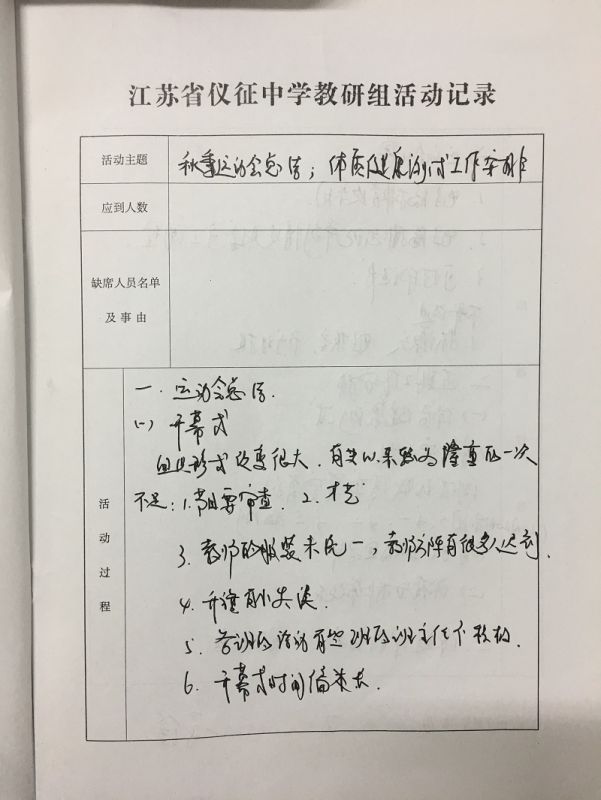 江苏省仪征中学教研组活动记录
活动主题
秋季运动会总结；体质健康测试工作安排
应到人数
缺席人员名单
及事由
活动过程
一．运动会总结．
(一) 开幕式
组织形式改变很大．有史以来较为隆重的一次
不足：1.节目要审查． 2.
3．教师的服装未统一，教师方阵有很多人迟到．
4．升旗有小失误．
5．各班的活动有些班的班主任不积极．
6．开幕式时间偏长．